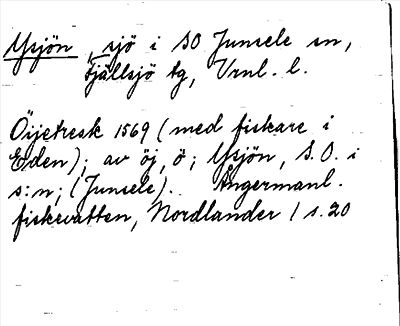 Ysjön, sjö i SO Junsele sn,
Fjällsjö tg, Vrnl. l.
Öijetresk 1569 (med fiskare i
Eden); av öj, ö; Ysjön, S.O. i
s:n; (Junsele). Ångermanl.
fiskevatten, Nordlander 1 s. 20